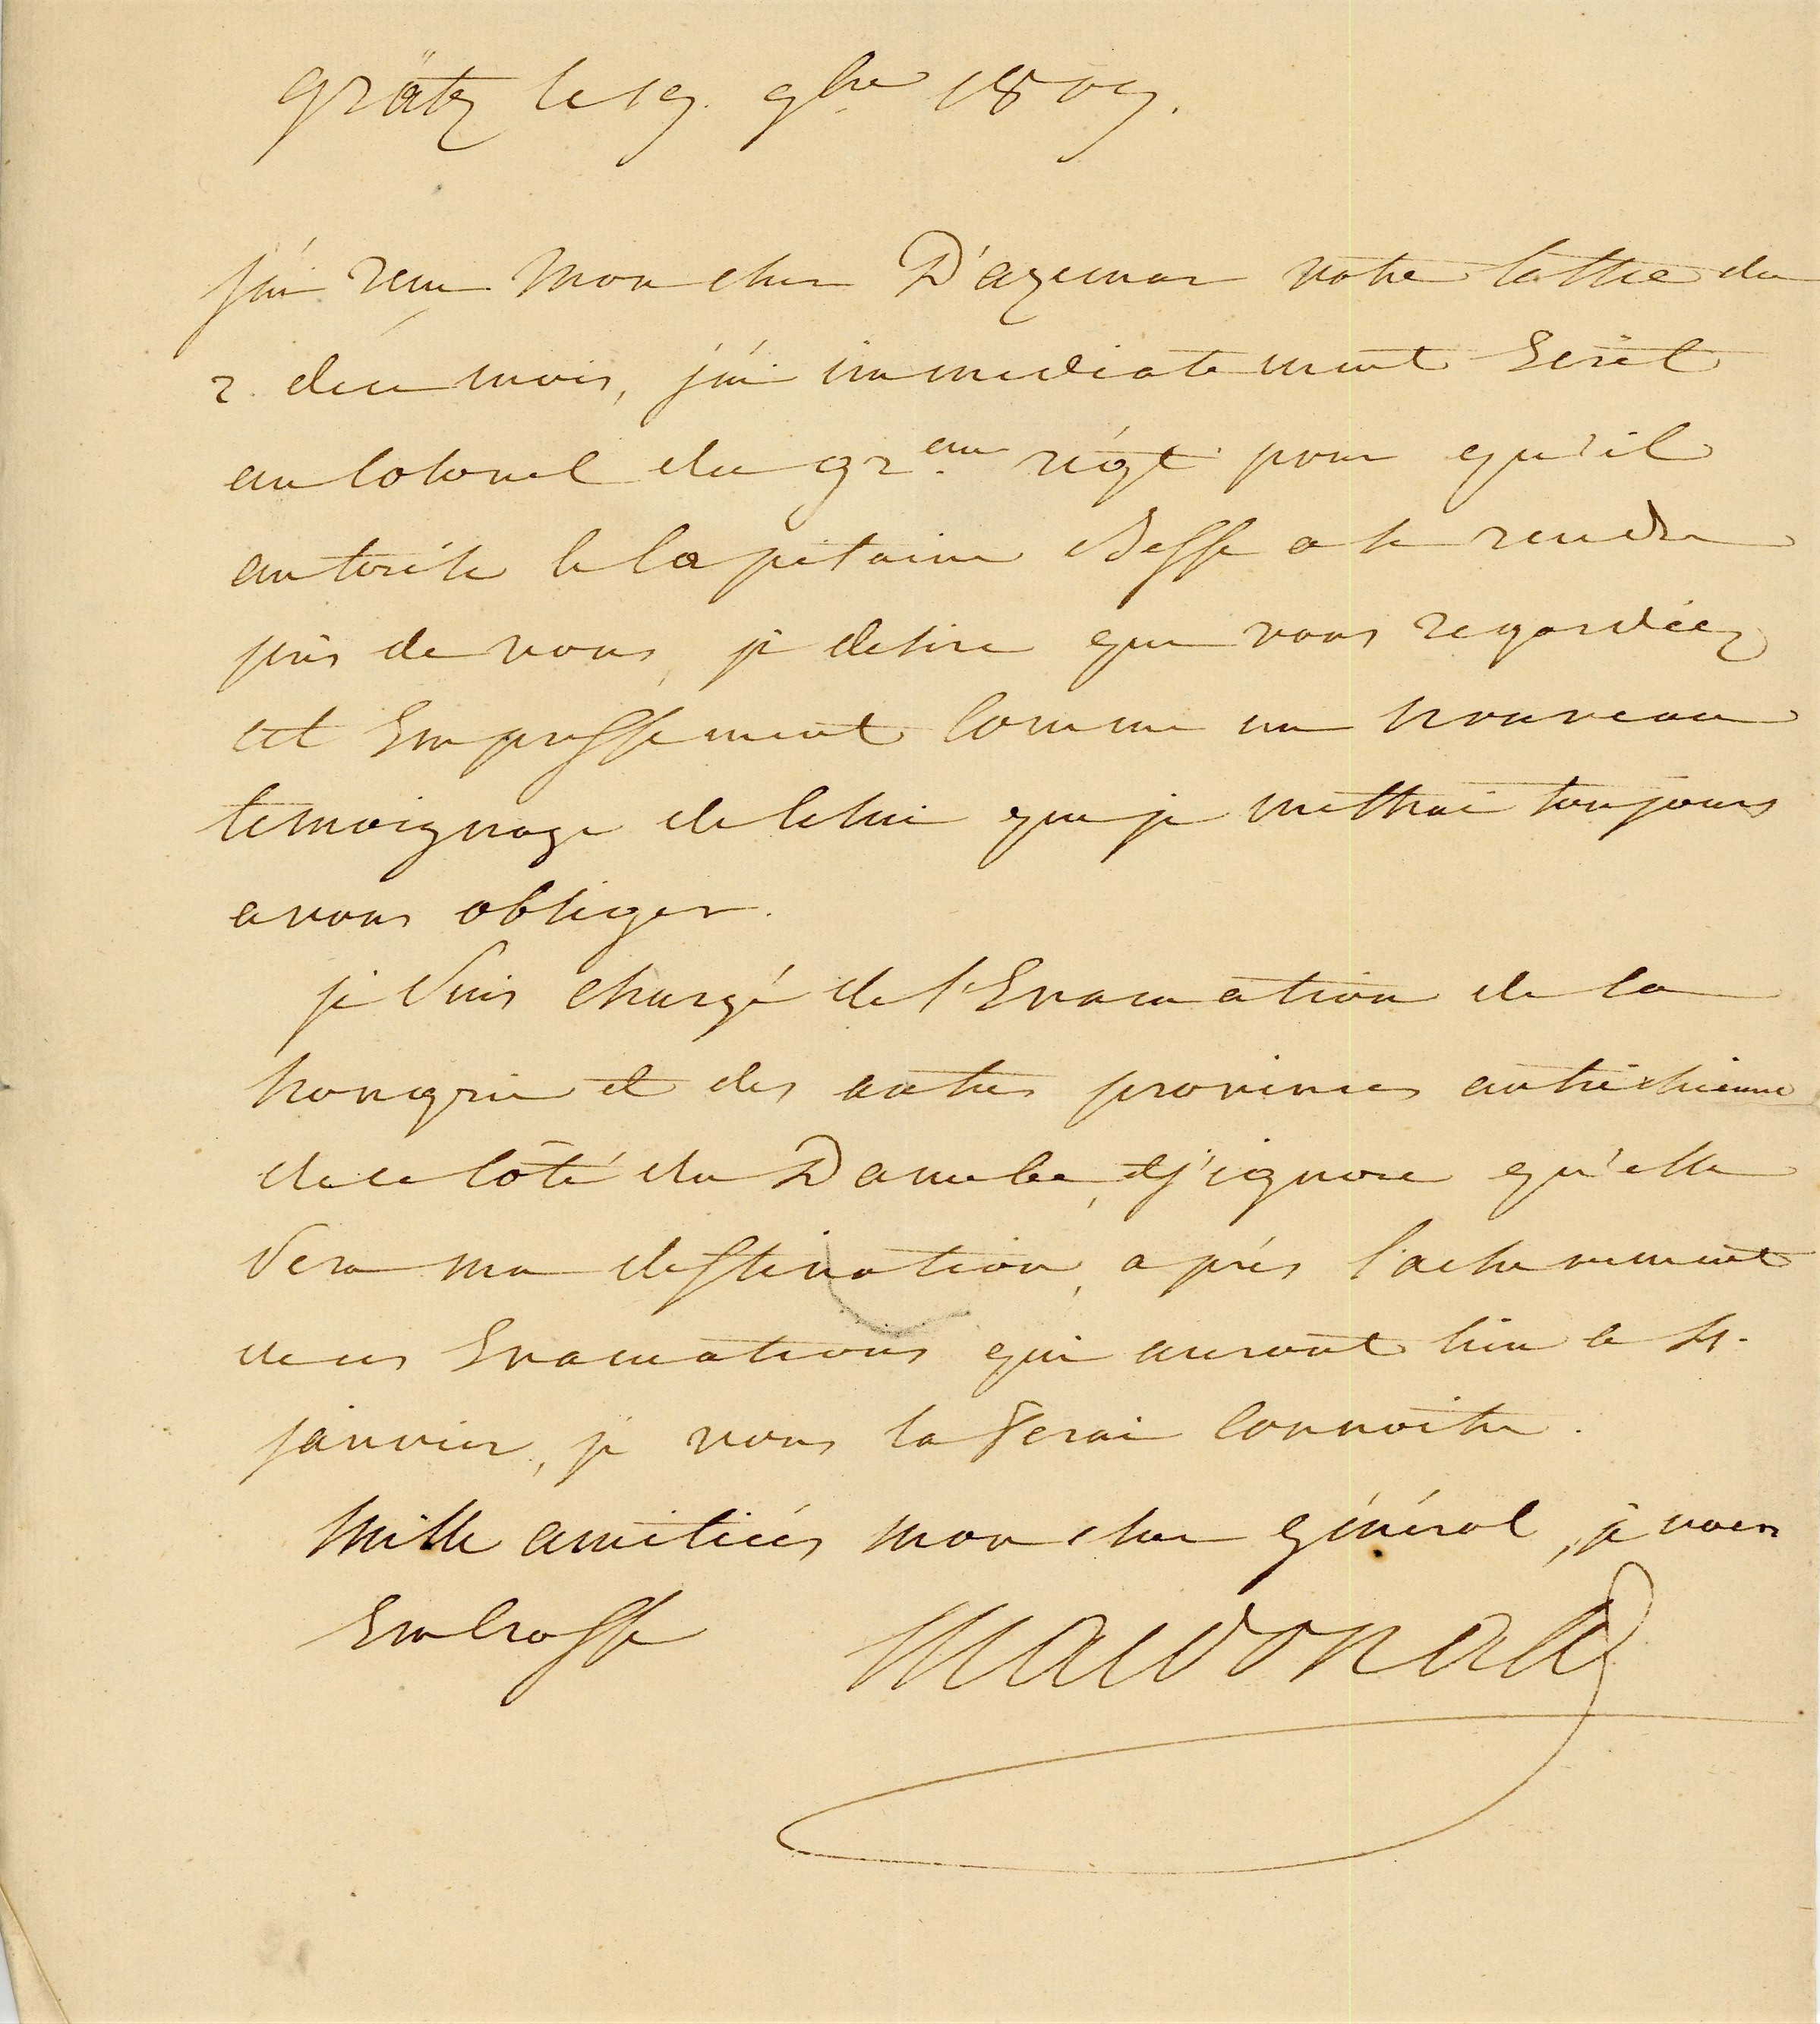 grätz le 19. 9bre 1809.
j'ai reçu mon cher D'azemar votre lettre du
2. de ce mois, j'ai immediatement Ecrit
au Colonel du 92.eme régt pour qu'il
autorise le Capitaine Besse a se rendre
près de vous, je desire que vous regardiéz
cet Empressement Comme un nouveau
temoignage de celui que je mettrai toujours
a vous obliger.
je suis chargé de l'Evacuation de la
hongrie et des autres provinces autrichienne
de ce Côté du Danube, et j'ignore qu'elle
sera ma destination, après l'achevement
de ces Evacuations qui auront lieu le 4.
janvier, je vous la ferai Connoitre.
Mille amitiés mon cher général, je vous
Embrasse
Macdonald